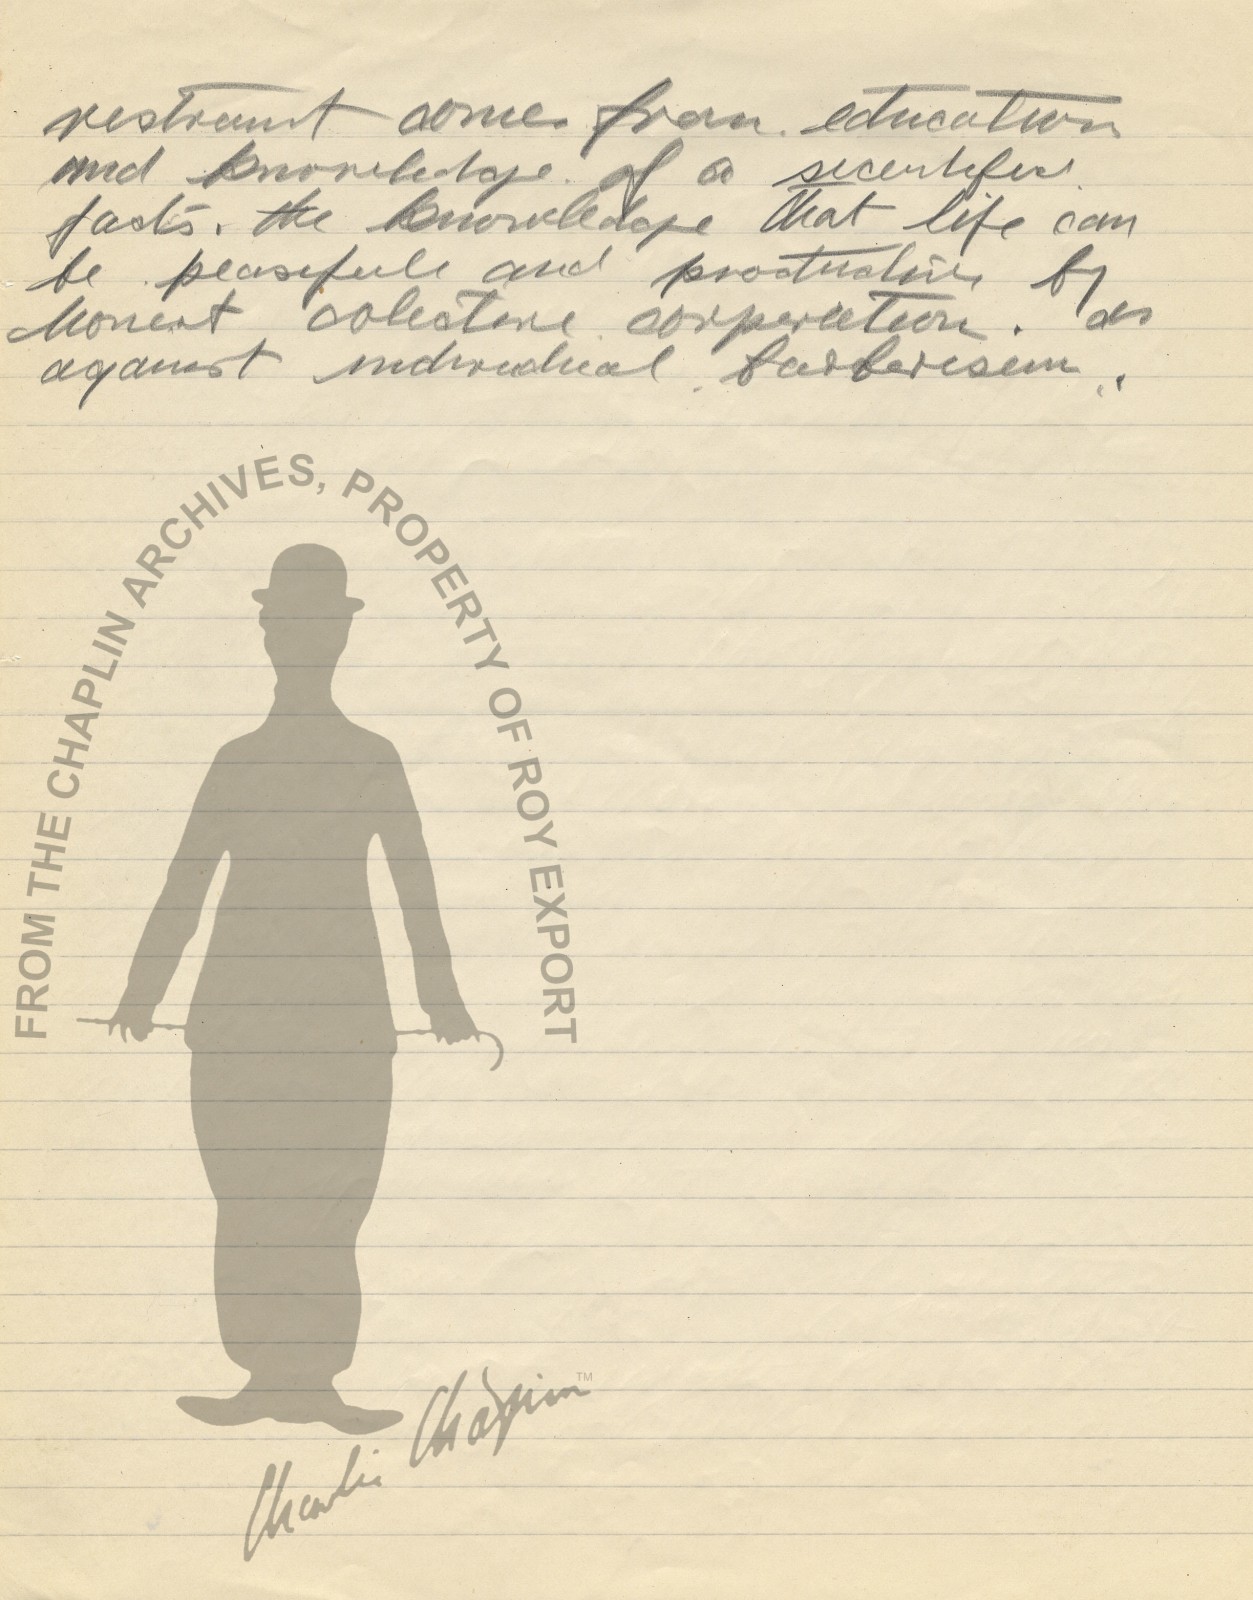 restraint comes from education
and knowledge of a scientific
facts. the knowledge that life can
be peasefule and productive by
Honest colective corperation. as
against individual barberisem.
FROM THE CHAPLIN ARCHIVES, PROPERTY OF ROY EXPORT
Charlie Chaplin TM